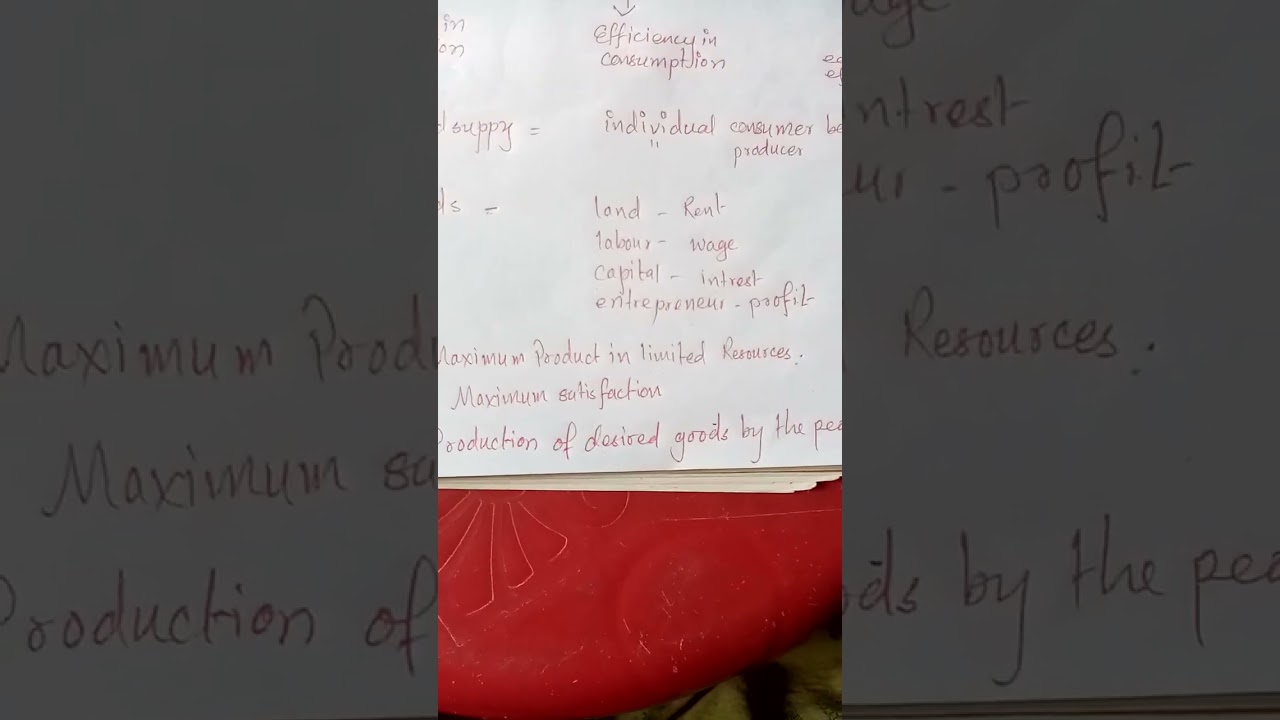 in
on
Efficiency in
consumption
d suppy = individual consumer be
" producer
ds - land - Rent
labour - wage
capital - intrest
entrepreneur - profit
Maximum Product in limited Resources.
Maximum satisfaction
Production of desired goods by the peo